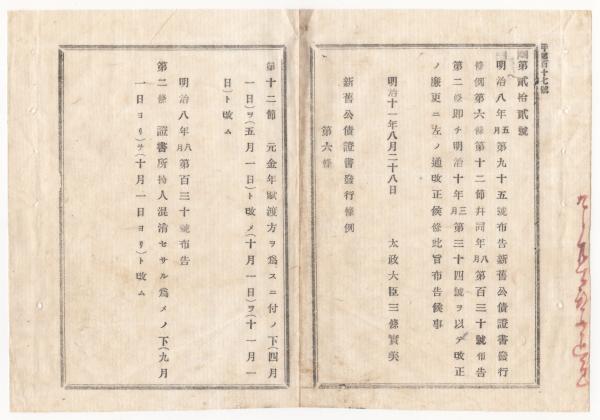 甲第百十七號
第貳拾貳號
明治八年五月第九十五號布告新舊公債證書發行
條例第六條第十二節幷同年八月第百三十號布告
第二條卽チ明治十年三月第三十四號ヲ以テ改正
ノ廉更ニ左ノ通改正候條此旨布告候事
明治十一年八月二十八日
太政大臣三條實美
新舊公債證書發行條例
第六條
第十二節 元金年賦渡方ヲ爲スニ付ノ下(四月
一日)ヲ(五月一日)ト改メ(十月一日)ヲ(十一月一
日)ト改ム
明治八年八月第百三十號布告
第二條 證書所持人混淆セサル爲メノ下(九月
一日ヨリ)ヲ(十月一日ヨリ)ト改ム